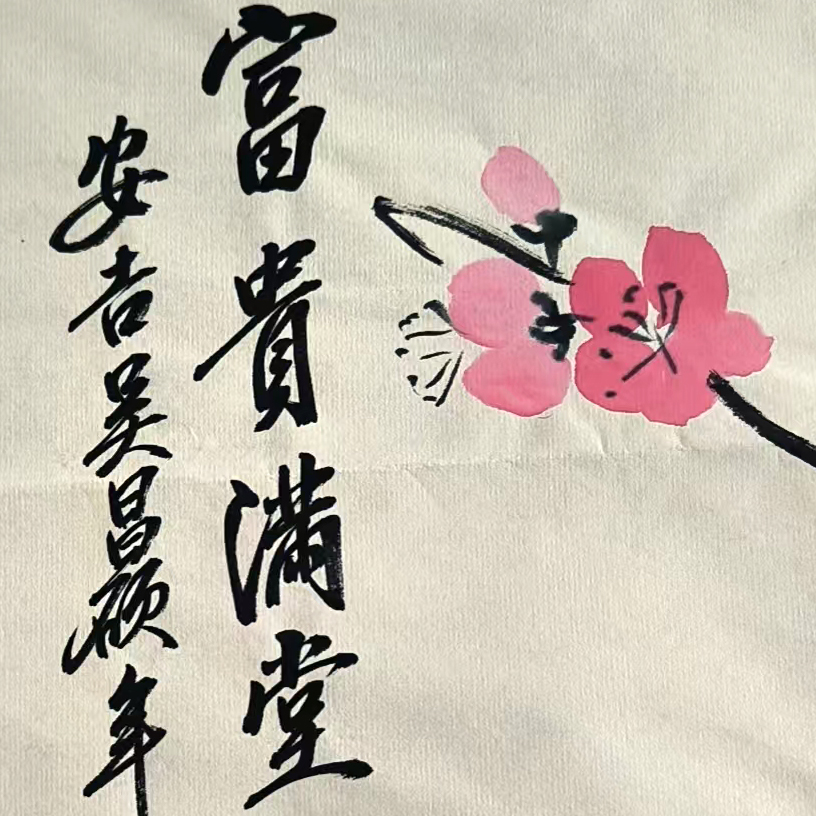 富貴滿堂
安吉吴昌碩年